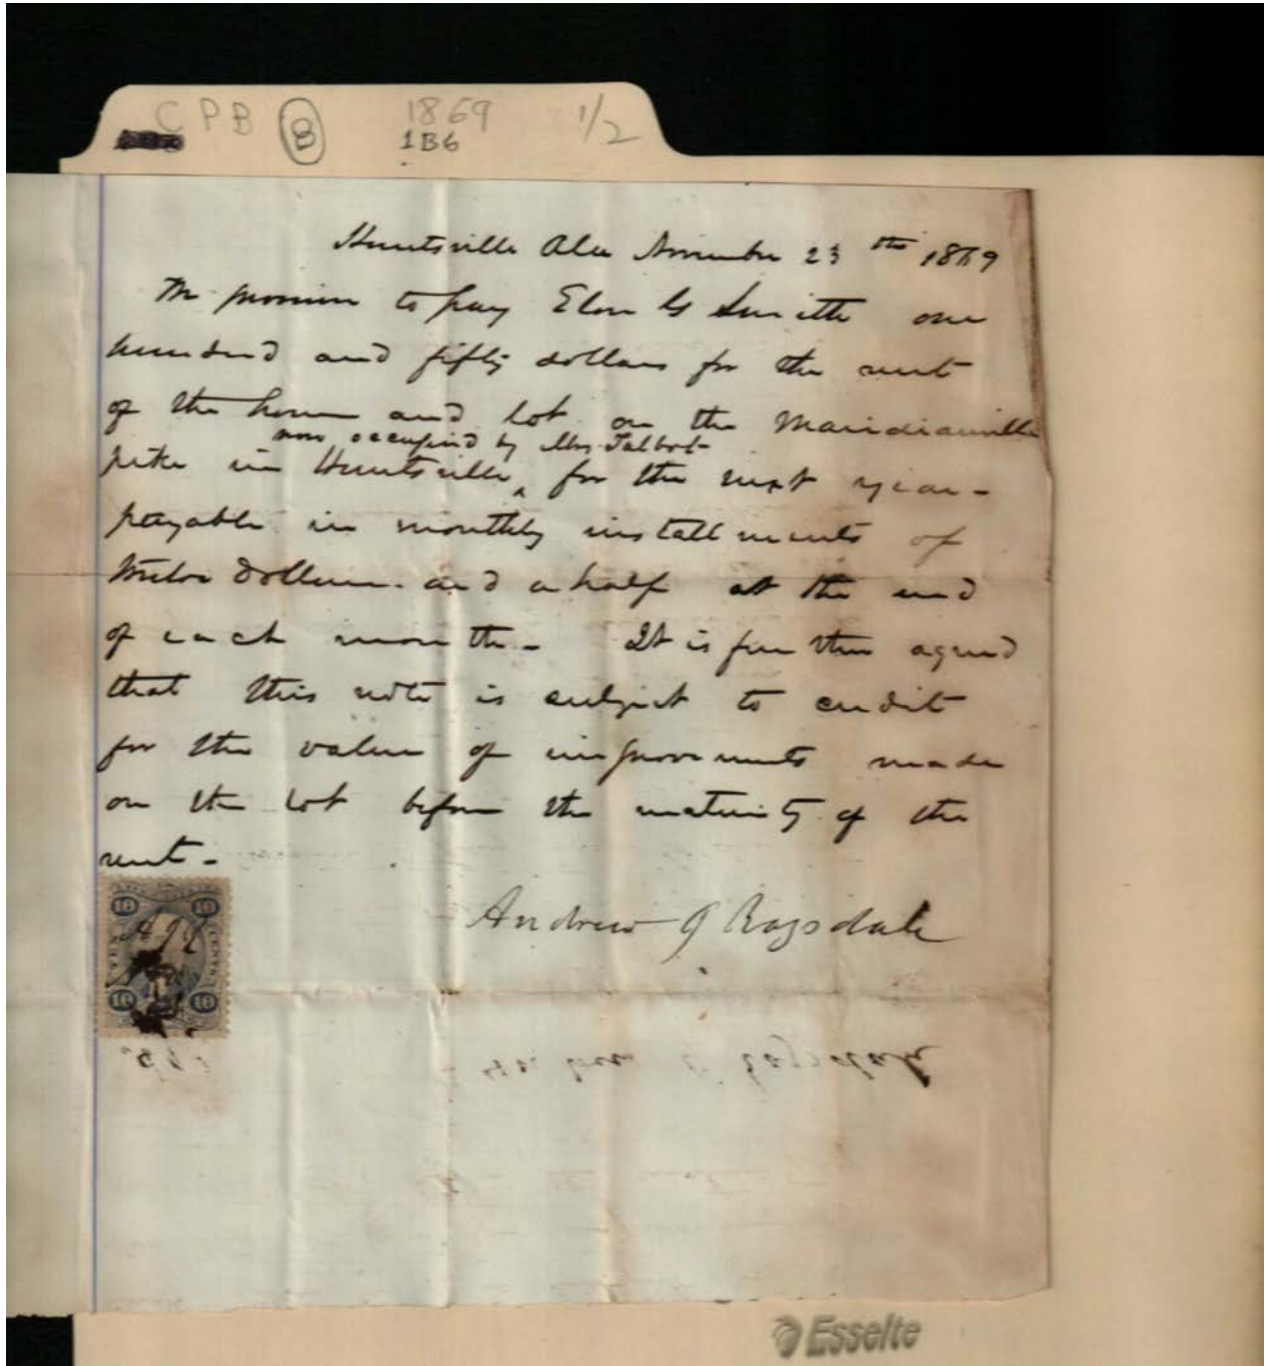 CPB (B) 1869 1/2
1B6
Huntsville Ala November 23th 1869
We promise to pay Elon G Smith one
hundred and fifty dollars for the rent
of the house and lot on the Maridianville
now occupied by Mrs Talbot
pike in Huntsville ‸ for the next year -
payable in monthly installments of
twelve dollars and a half at the end
of each month - It is further agreed
that this note is subject to credit
for the value of improvements made
on the lot before the maturity of the
rent -
10 10
CENTS
10 10
Andrew J Ragsdale
Esselte